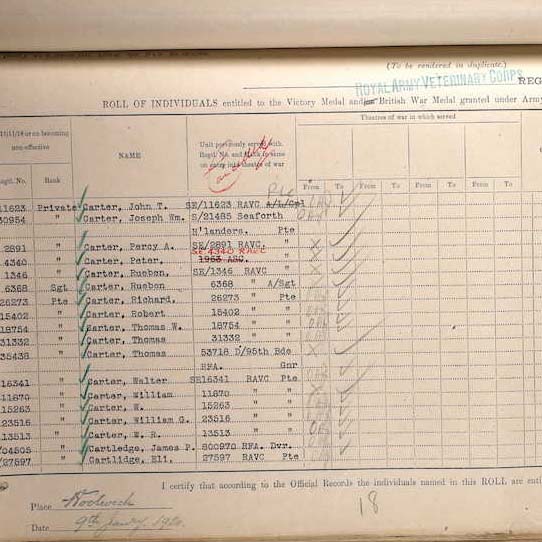 (To be rendered in duplicate.)
ROYAL ARMY VETERINARY CORPS
REG
ROLL OF INDIVIDUALS entitled to the Victory Medal and/or British War Medal granted under Army
11/11/18 or on becoming non-effective
NAME
Unit previously served with. Regtl. No. and Rank in same on entry into theatre of war
Theatres of war in which served
Regtl. No. Rank From To From To From To From To
11623 Private Carter, John T. SE/11623 RAVC A/L/Cpl
30954 " Carter, Joseph Wm. S/21485 Seaforth
H'landers. Pte
2891 " Carter, Percy A. SE/2891 RAVC. "
SE 4340 RAVC
4340 " Carter, Peter. 1953 ASC. "
1346 " Carter, Rueben. SE/1346 RAVC "
6368 Sgt Carter, Rueben 6368 " A/Sgt
26273 Pte Carter, Richard. 26273 " Pte
15402 " Carter, Robert 15402 " "
18754 " Carter, Thomas W. 18754 " "
31332 " Carter, Thomas 31332 " "
35438 " Carter, Thomas 53718 D/95th Bde
RFA. Gnr
16341 " Carter, Walter SE16341 RAVC Pte
11870 " Carter, William 11870 " "
15263 " Carter, W. 15263 " "
23516 " Carter, William G. 23516 " "
13513 " Carter, W. R. 13513 " "
04505 " Cartledge, James P. 800970 RFA. Dvr.
27597 " Cartlidge, Eli. 27597 RAVC Pte
I certify that according to the Official Records the individuals named in this ROLL are enti
Place Woolwich
18
Date 9th
1920.